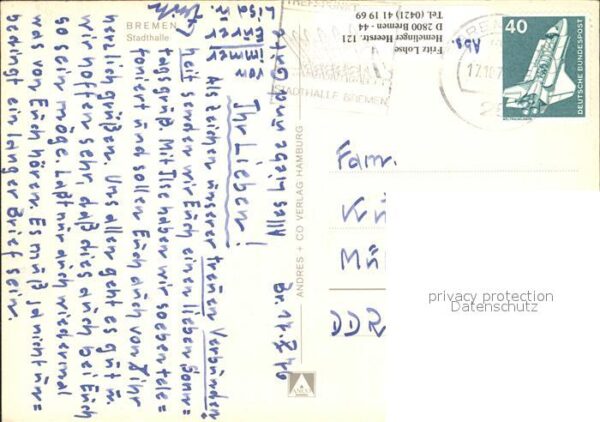 BREMEN
Stadthalle
Br. 17. 8. 76
Ihr Lieben!
Als Zeichen unserer treuen Verbunden=
heit senden wir Euch einen lieben Sonn=
tagsgruß. Mit Ilse haben wir soeben tele=
foniert und sollen Euch auch von Ihr
herzlich grüßen. Uns allen geht es gut u.
wir hoffen sehr, daß dies auch bei Euch
so sein möge. Laßt nur auch wiedermal
was von Euch hören. Es muß ja nicht un=
bedingt ein langer Brief sein.
Alles Liebe
für immer
ANDRES + CO VERLAG HAMBURG
ANDRES
TREFFPUNKT
STADTHALLE BREMEN
Abs.
Fritz Lohse
Hemelinger Heerstr. 121
D 2800 Bremen - 44
Tel. (0421) 41 19 69
40
DEUTSCHE BUNDESPOST
Fam.
DDR
privacy protection
Datenschutz